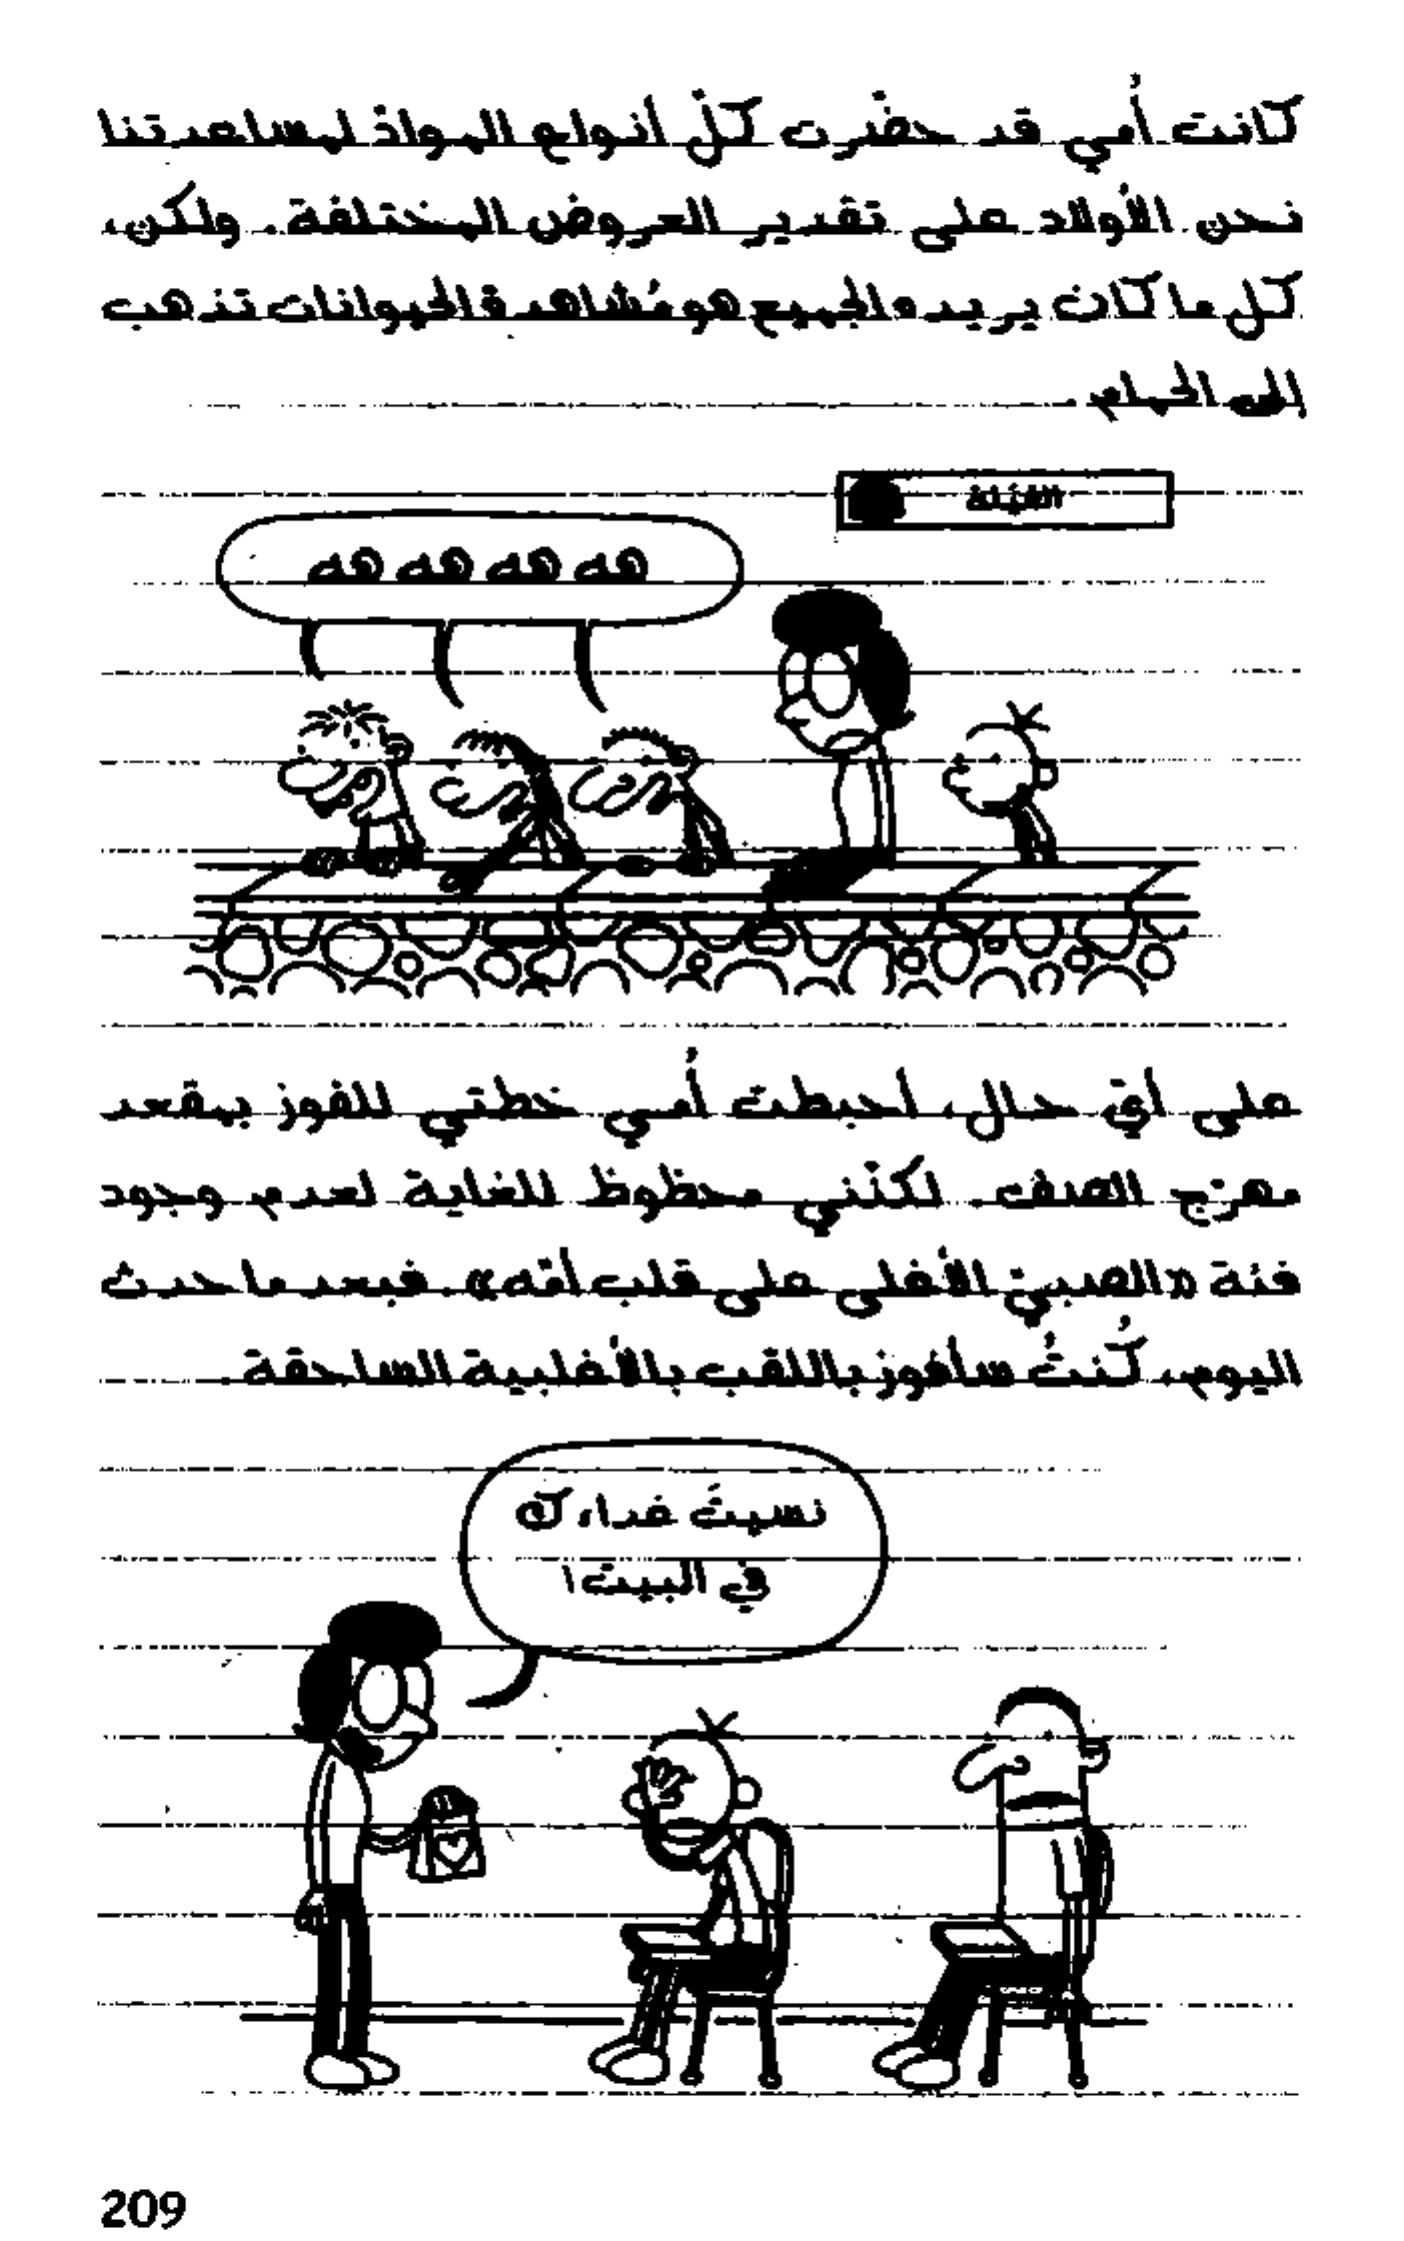 كانت أُمي قد حضّرت كلّ أنواع الموادّ لمساعدتنا
نحن الأولاد على تقدير العروض المختلفة. ولكن،
كل ما كان يريده الجميع هو مُشاهدة الحيوانات تذهب
إلى الحمام.
الفيَلة
هه هه هه هه
على أيّ حال، أحبطت أُمي خطتي للفوز بمقعد
مهرّج الصف. لكنّني محظوظ للغاية لعدم وجود
فئة «الصبيّ الأغلى على قلب أمّه». فبعد ما حدث
اليوم، كُنتُ سأفوز باللقب بالأغلبية الساحقة.
نسيتَ غداءك
في البيت!
209